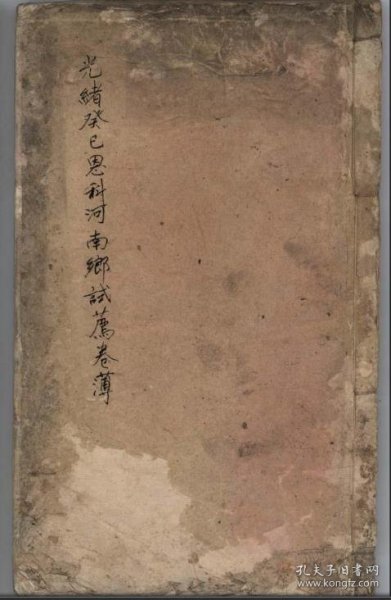 光緒癸巳恩科河南鄉試薦卷薄
孔夫子旧书网
www.kongfz.com